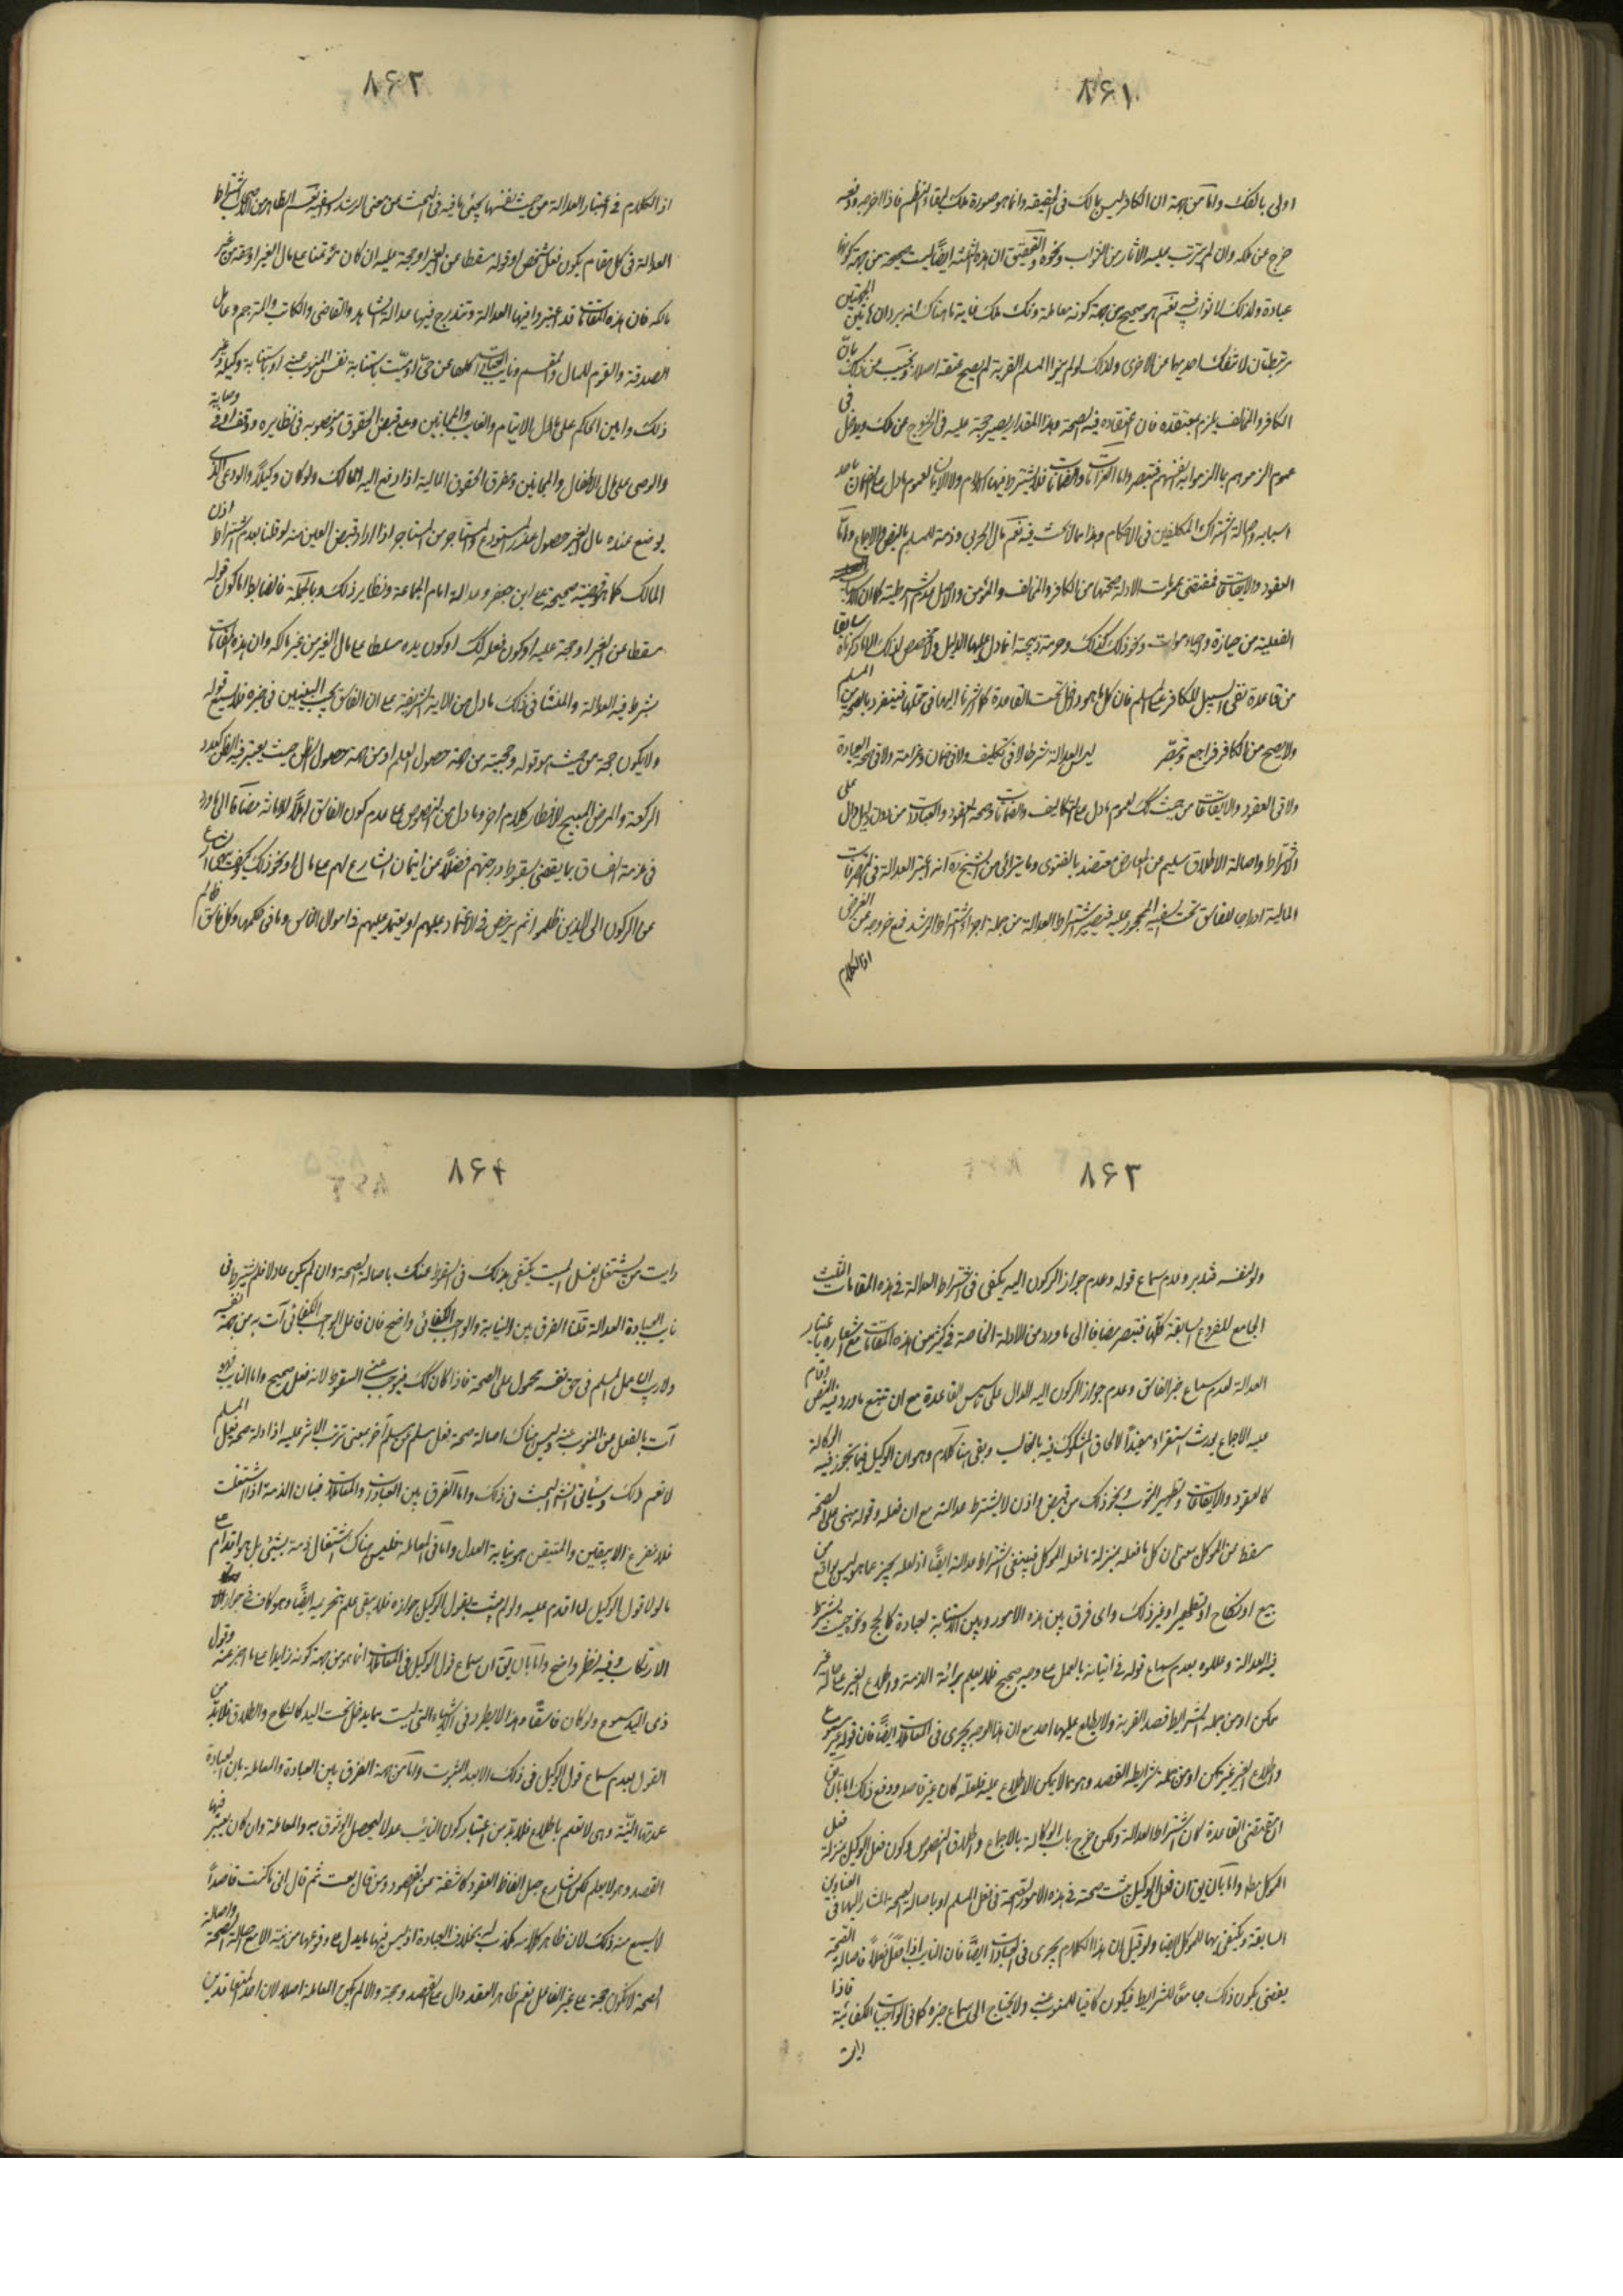 ٨۶١
اولى بالفك واما من جهة ان الكافر ليس بمالك فى الحقيقة وانما هو صورة ملك لبقاء النظم فاذا اخرجه ودفعه
خرج عن ملكه وان لم يترتب عليه الاثار من الثواب ونحوه والتحقيق ان هذه الثلثة ايضا ليست صحيحة من جهة كونها
عبادة ولذلك لا ثواب فيه نعم هو صحيح من جهة كونه معاملة وفك ملك غاية ما هناك انه يرد ان هاتين الجهتين
مرتبطتان لا تنفك احديهما عن الاخرى ولذلك لو لم ينو المسلم القربة لم يصح عتقه اصلا ويجيب عن ذلك بان
الكافر والمخالف يلزم بمعتقده فان اعتقاده فيه الصحة وهذا المقدار يصير حجة عليه فى الخروج عن ملكه ويدخل فى
عموم الزموهم بما الزموا به انفسهم فتبصر واما الغرامات والضمانات فلا يشترط فيها الاسلام ولا الايمان لعموم ما دل على الضمان باحد
اسبابه واصالة اشتراك المكلفين فى الاحكام وهذا مما لا بحث فيه نعم مال الحربى وذمته للمسلم بالنص والاجماع واما
العقود والايقاعات فمقتضى عمومات الادلة صحتها من الكافر والمخالف والمؤمن والاصل عدم الشرطية كما ان الاسباب
الفعلية من حيازة واحياء موات ونحو ذلك كذلك وحرمة ذبيحته انما دل عليها الدليل ولا مخصص لذلك الا ما ذكرناه سابقا
من قاعدة نفى السبيل للكافر على المسلم فان كل ما هو داخل تحت القاعدة كما اشرنا اليها فى محلها فينفرد بالصحة من المسلم
ولا يصح من الكافر فراجع وتبصر ليس العدالة شرطا لا فى تكليف ولا فى ضمان وغرامة ولا فى صحة العبادة
ولا فى العقود والايقاعات من حيث كك لعموم ما دل على التكاليف والضمانات وصحة العقود والعبادات من دون دليل دال على
الاشتراط واصالة الاطلاق سليم عن المعارض معتضد بالفتوى وما يترائى من الشيخ ره انه اعتبر العدالة فى التصرفات
المالية ادراجا للفاسق تحت السفيه المحجور عليه فيصير اشتراط العدالة من جملة اجزاء اشتراط الرشد فمع خروجه عن الغرض
اذ الكلام
٨۶٢
اذ الكلام فى اعتبار العدالة من حيث نفسها يجئ ما فيه فى البحث عن معنى الرشد والسفه نعم الظاهر من الاصحاب اشتراط
العدالة فى كل مقام يكون فعل شخص او قوله مسقطا عن الغير او حجة عليه ان كان مؤتمنا على مال الغير او حقه من غير
مالكه فان هذه المقامات قد اعتبروا فيها العدالة وتندرج فيها عدالة الشاهد والقاضى والكاتب والمترجم وعامل
الصدقة والمقوم للمال والمقسم ونايب العبادات كلها عن حى او ميت باستنابة نفس المنوب عنه او باستنابة وكيله وغير
ذلك وامين الحاكم على مال الايتام والغايب والمجانين ومع قبض الحقوق ومنصوبه فى نظايره ووقف او فى وصاية
والوصى على مال الاطفال والمجانين ومفرق الحقوق المالية اذا دفع اليه المالك ولو كان وكيلا والودعى الذى
يوضع عنده مال الغير حصول عذر المستودع والمستاجر من المستاجر اذا اراد قبض العين منه لو قلنا بعدم اشتراط اذن
المالك كما هو قضية صحيحة على ابن جعفر وعدالة امام الجماعة ونظاير ذلك وبالجملة فالضابط اما كون قوله
مسقطا عن الغير او حجة عليه او كون فعله كك او كون يده مسلطا على مال الغير من غير مالكه وان هذه المقامات
يشترط فيه العدالة والمنشا فى ذلك ما دل من الاية الشريفة على ان الفاسق يجب التبيين فى خبره فلا يسمع قوله
ولا يكون حجة من حيث هو قوله وحجيته من جهة حصول العلم او من جهة حصول الظن حيث يعتبر فيه الظن كعدد
الركعة والمرض المبيح للافطار كلام اخر وما دل من النصوص على عدم كون الفاسق اهلا للامانة مضافا الى ما ورد
فى مذمة الفساق بما يقضى بسقوط درجتهم فضلا عن ائتمان الشارع لهم على مال او نحو ذلك وكيف ينهى الشارع
عن الركون الى الذين ظلموا ثم يرخص فى الاعتماد عليهم او يعتمد عليهم فى اموال الناس وما فى حكمها وكل فاسق ظالم
٨۶٣
ولو لنفسه فتدبر وعدم سماع قوله وعدم جواز الركون اليه يكفى فى اشتراط العدالة فى هذه المقامات الثلث
الجامع للفروع السابقة كلها فتبصر مضافا الى ما ورد من الادلة الخاصة فى كثير من هذه المقامات مع اشعاره باعتبار
العدالة لعدم سماع خبر الفاسق وعدم جواز الركون اليه الدال على تاسيس القاعدة مع ان تتبع ما ورد فيه النص وقام
عليه الاجماع يورث استقراء مفيدا لالحاق المشكوك فيه بالغالب وبقى هنا كلام وهو ان الوكيل فيما يجوز فيه الوكالة
كالعقود والايقاعات وتطهير الثوب ونحو ذلك من قبض واذن لا يشترط عدالته مع ان فعله وقوله مبنى على الصحة
مسقط عن الموكل بمعنى ان كل ما فعله بمنزلة ما فعله الموكل فينبغى اشتراط عدالته ايضا اذ لعله يخبر عما هو ليس بواقع من
بيع او نكاح او تطهير او غير ذلك واى فرق بين هذه الامور وبين الاستنابة لعبادة كالحج ونحوه حيث يشترط
فيه العدالة وعللوه بعدم سماع قوله فى اتيانه بالعمل على وجه صحيح فلا يعلم برائة الذمة واطلاع الغير على حاله غير
ممكن او من جملة الشرايط قصد القربة ولا يطلع عليها احد مع ان هذا الوجه يجرى فى المعاملات ايضا فان قوله غير مسموع
واطلاع الغير غير ممكن او من جملة شرايطه القصد وهو مما لا يمكن الاطلاع عليه فلعله كان غير قاصد ودفع ذلك اما بان يق
ان مقتضى القاعدة كان اشتراط العدالة ولكن خرج باب الوكالة بالاجماع واطلاق النصوص وكون فعل الوكيل بمنزلة فعل
الموكل بطه واما بان يق ان فعل الوكيل يثبت صحته فى هذه الامور لصحة فى فعل المسلم او باصالة الصحة المشار اليها فى العناوين
السابقة ويكتفى بها للموكل ايضا ولو قيل ان هذا الكلام يجرى فى العبادات ايضا فان النايب اذا فعل فعلا فاصالة الصحة
يقضى بكون ذلك جامعا للشرايط فيكون كافيا للمنوب عنه ولا يحتاج الى سماع خبره كما فى الواجبات الكفائية فاذا
رايت
٨۶۴
رايت من يشتغل بغسل الميت يكتفى بذلك فى السقوط عنك باصالة الصحة وان لم يكن عادلا فلم يشترط فى
نايب العبادة العدالة قلنا الفرق بين النيابة والواجب الكفائى واضح فان فاعل الواجب الكفائى آت به من جهة نفسه
ولا ريب ان عمل المسلم فى حق نفسه محمول على الصحة فاذا كان كك فيوجب السقوط لانه فعل صحيح واما النايب فهو
آت بالفعل عن المنوب عنه وليس هناك اصالة صحة فعل مسلم عن مسلم آخر بمعنى ترتب الاثر عليه اذ ادلة صحة فعل المسلم
لا تعم ذلك وسيأتى انشاء البحث فى ذلك واما الفرق بين العبادات والمعاملات فبان الذمة اذا اشتغلت
فلا تفرغ الا بيقين والمتيقن هو نيابة العدل واما فى المعاملة فليس هناك اشتغال ذمة بشئ بل هو اقدام على
ما لولا قول الوكيل لما اقدم عليه ولو لم يثبت بقول الوكيل جوازه فلا يبقى علم بتحريمه ايضا وهو كاف فى جواز
الارتكاب وفيه نظر واضح واما بان يق ان سماع قول الوكيل فى المعاملات انما هو من جهة كونه ذا يد على ما اخبر عنه وقول
ذى اليد مسموع ولو كان فاسقا وهذا لا يطرد فى الاشياء التى ليست مما يدخل تحت اليد كالنكاح والطلاق فلا بد من
القول بعدم سماع قول الوكيل فى ذلك الا بعد الثبوت واما من جهة الفرق بين العبادة والمعاملة بان العبادة
عمدتها النية وهى لا تعلم باطلاع فلا بد من اعتبار كون النائب عدلا ليحصل الوثوق به والمعاملة وان كان يعتبر فيها
القصد وهو لا يعلم لكن الشارع جعل الفاظ العقود كاشفة عن المقصود ومن قال بعت ثم قال انى ما كنت قاصدا
لا يسمع منه ذلك لان ظاهر كلامه مكذب له بخلاف العبادة اذ ليس فيها ما يدل على وقوعها من نية الا مع اصالة الصحة واصالة
الصحة لا تكون حجة على غير الفاعل نعم ظاهر العقد دال على القصد وحجة والا لم يكن المعاملة اصلا لان احد المتعاقدين